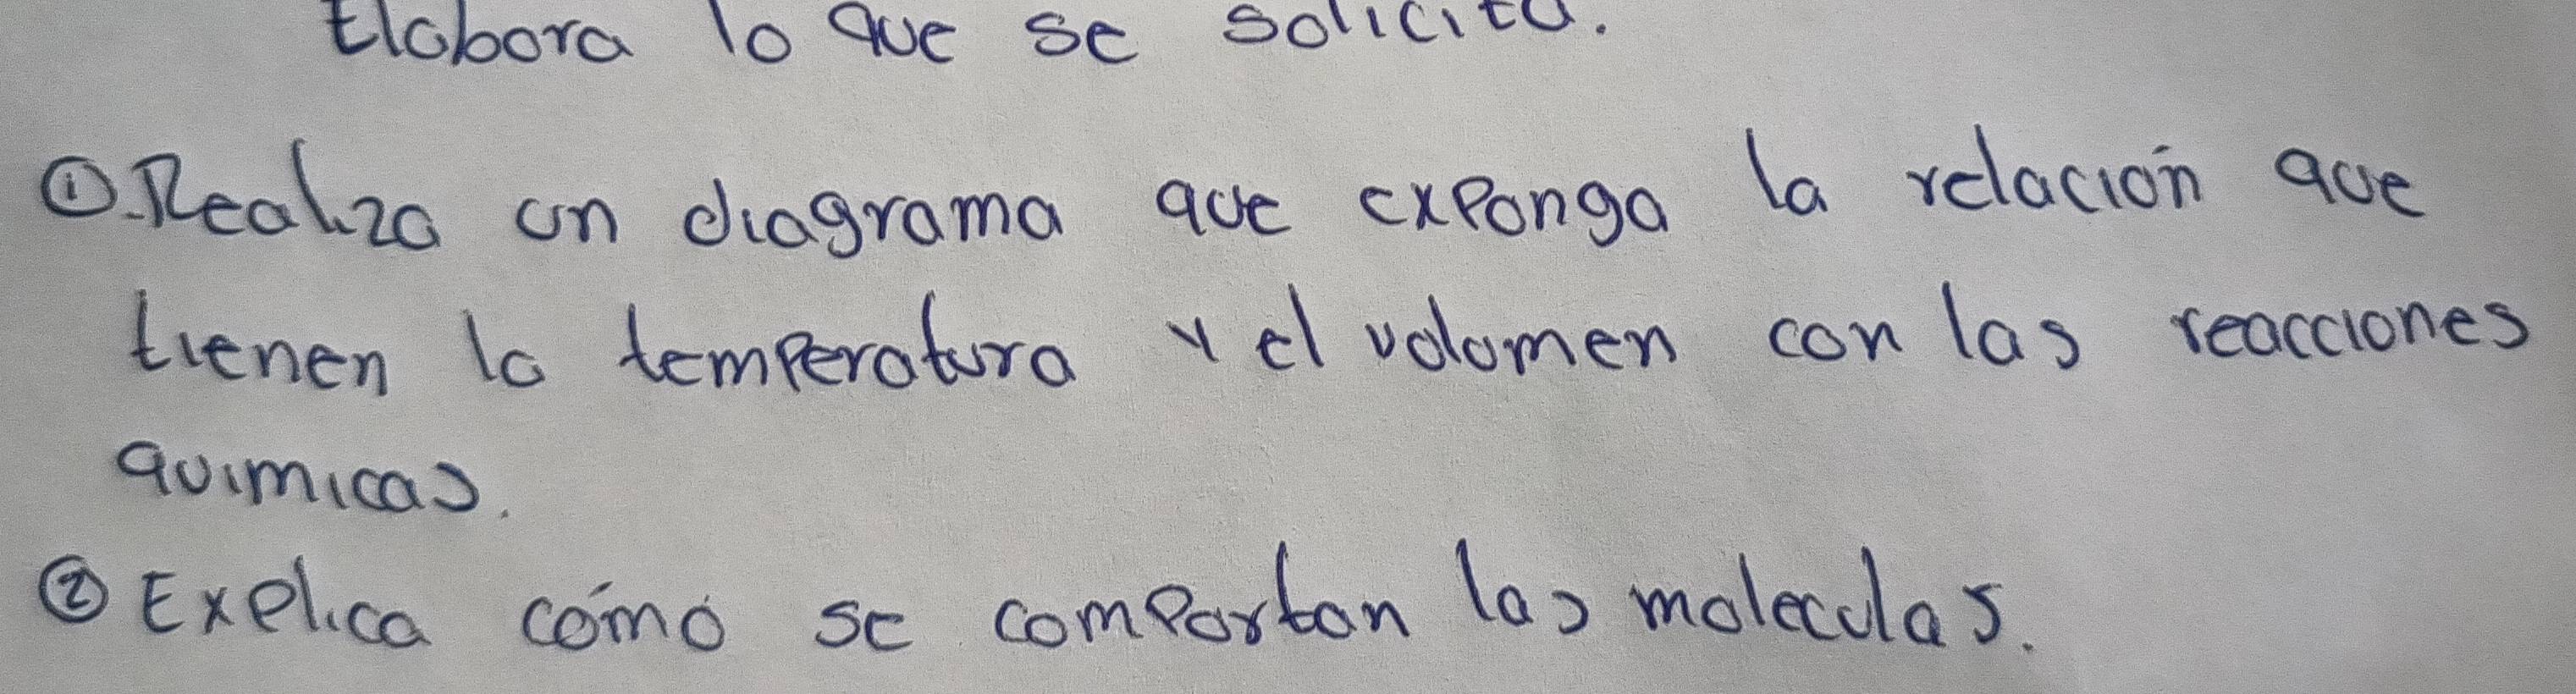 Elabora lo que se solicita.
①.Realiza un diagrama que exponga la relación que
tienen la temperatura y el volumen con las reacciones
quimicas.
② Explica cómo se comportan las moleculas.